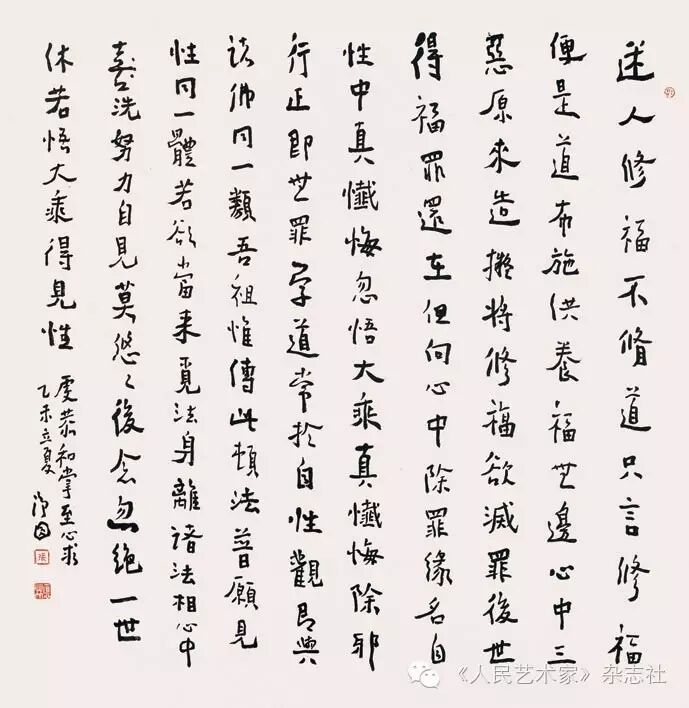 迷人修福不脩道只言修福
便是道布施供養福無邊心中三
惡原來造擬將修福欲滅罪後世
得福罪還在但向心中除罪緣名自
性中真懺悔忽悟大乘真懺悔除邪
行正即無罪學道常於自性觀即與
諸佛同一類吾祖惟傳此頓法普願見
性同一體若欲當來覓法身離諸法相心中
洗努力自見莫悠々後念忽絕一世
休若悟大乘得見性
虔恭和掌至心求
乙未立夏
《人民艺术家》杂志社